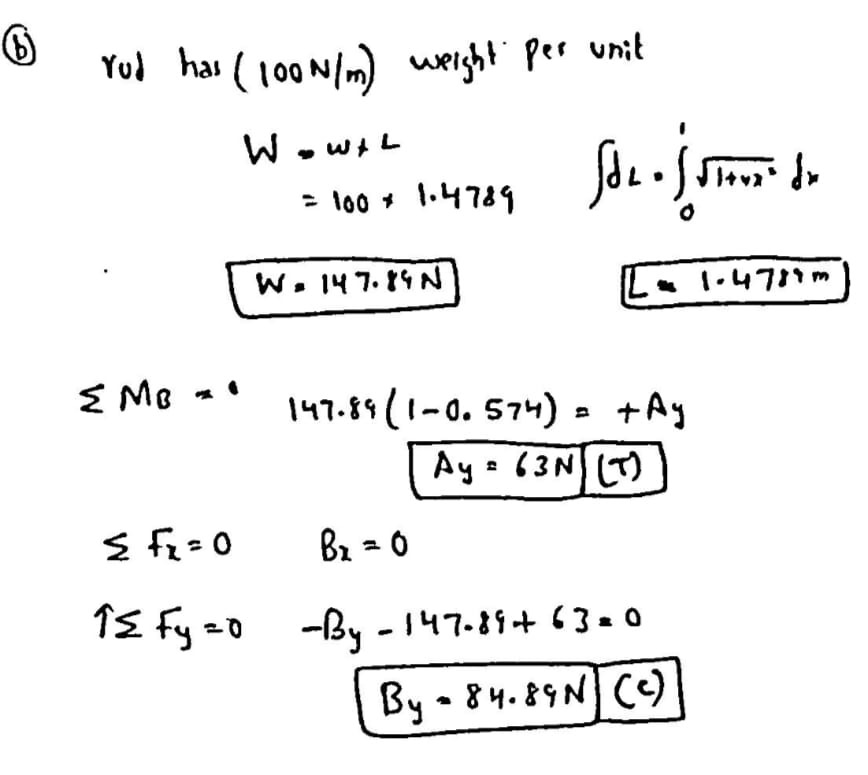 (b) rod has (100 N/m) weight per unit
W = w * L
= 100 * 1.4789
∫dL = ∫₀¹ √1+4x² dx
W = 147.89 N
L = 1.4789 m
Σ MB = 0 147.89 (1-0.574) = +Ay
Ay = 63N (T)
Σ Fx = 0 Bx = 0
↑Σ Fy = 0 -By - 147.89 + 63 = 0
By = 84.89N (C)